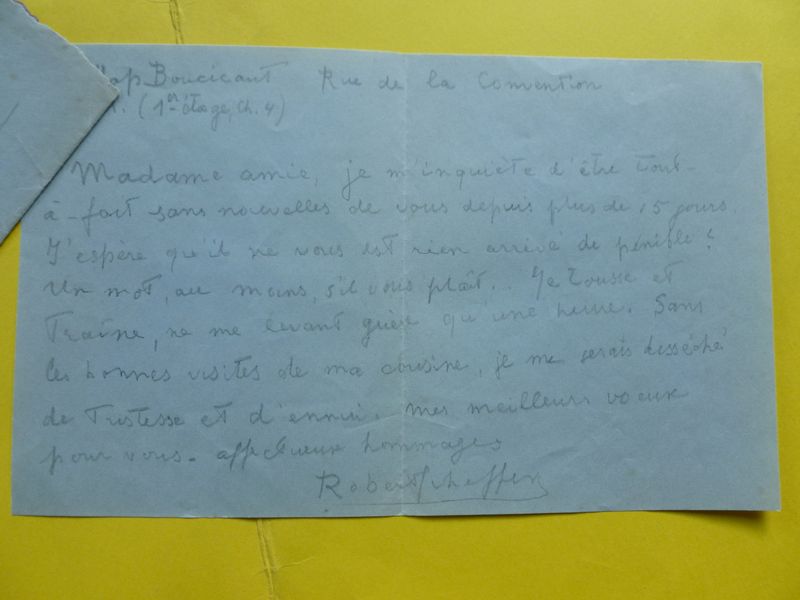 Hop Boucicaut Rue de la Convention
(1er étage, ch. 4)
Madame amie, je m'inquiète d'être tout-
à-fait sans nouvelles de vous depuis plus de 15 jours.
J'espère qu'il ne vous est rien arrivé de pénible ?
Un mot, au moins, s'il vous plaît.. Je tousse et
traîne, ne me levant guère qu'une heure. Sans
les bonnes visites de ma cousine, je me serais desséché
de tristesse et d'ennui. Mes meilleurs voeux
pour vous. affectueux hommages
Robert Scheffer